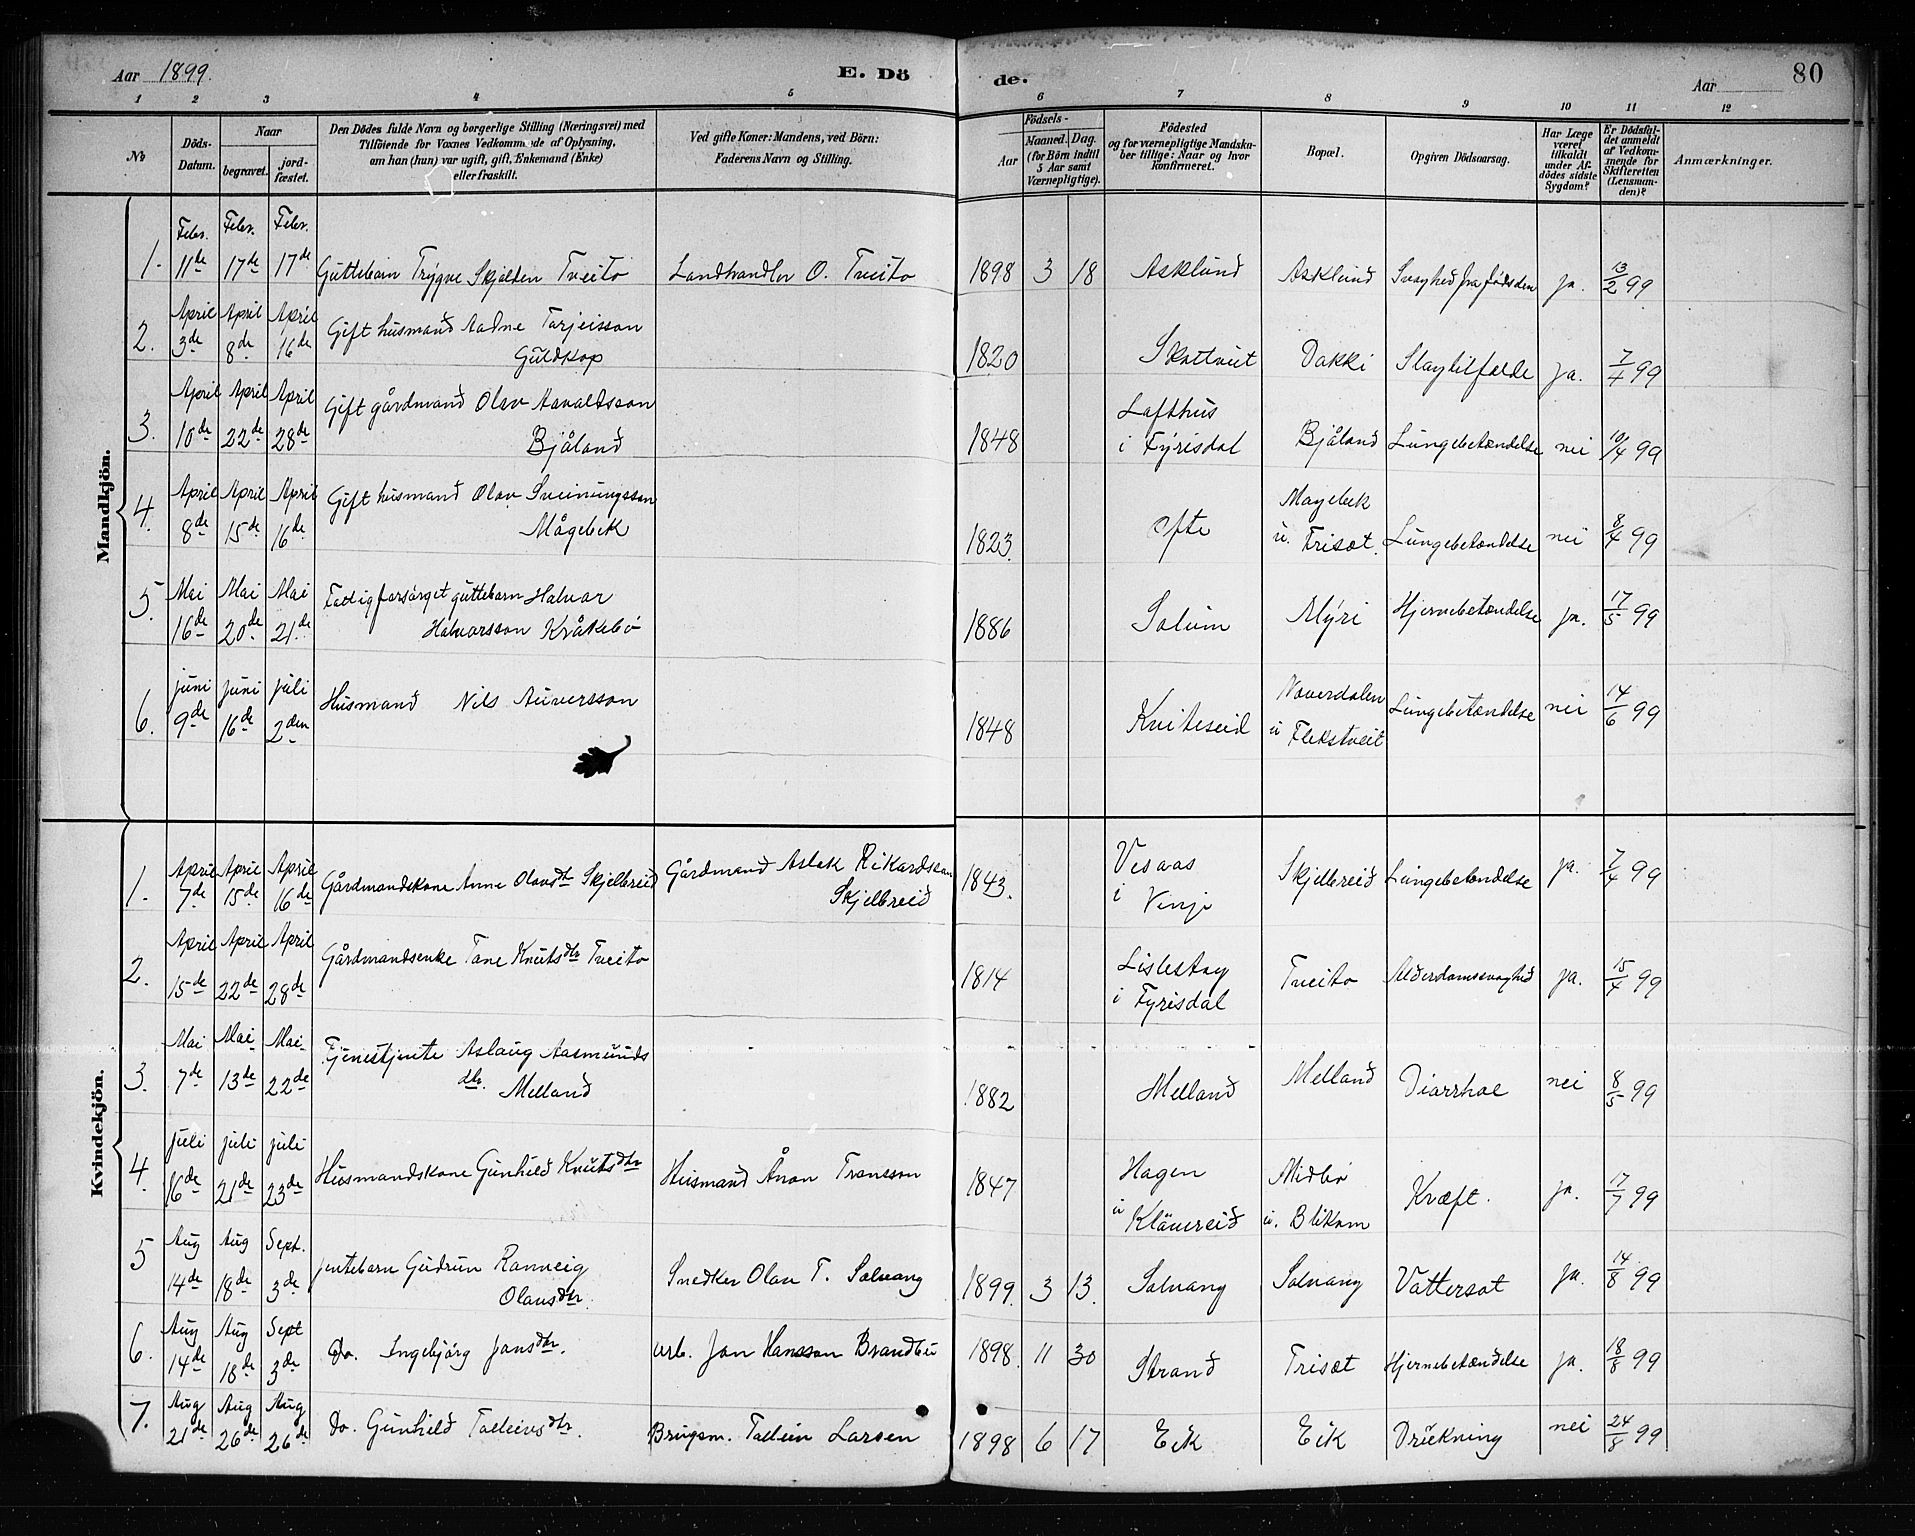 Aar 1899. E. Dö de. Aar 80
1 2 3 4 5 6 7 8 9 10 11 12
No
Döds-
Datum.
Naar
begravet.
jord-
fæstet.
Den Dödes fulde Navn og borgerlige Stilling (Næringsvei) med
Tilföiende for Voxnes Vedkommende af Oplysning,
om han (hun) var ugift, gift, Enkemand (Enke)
eller fraskilt.
Ved gifte Koner: Mandens, ved Börn:
Faderens Navn og Stilling.
Födsels-
Aar
Maaned. Dag.
(for Börn indtil
5 Aar samt
Værnepligtige).
Födested
og for værnepligtige Mandskaber
tillige: Naar og hvor
konfirmeret.
Bopæl.
Opgiven Dödsaarsag.
Har Læge
været
tilkaldt
under Af-
dödes sidste
Sygdom?
Er Dödsfal-
det anmeldt
af Vedkom-
mende for
Skifteretten
(Lensman-
den)?
Anmærkninger.
Mandkjön.
Febr. Febr. Febr.
1. 11de 17de 17de Guttebarn Trygve Skjalden Tveito Landhandler O. Tveito 1898 3 18 Asklund Asklund Svaghed fra fødselen ja. 13/2 99
April April April
2. 3de 8de 16de Gift husmand Aadne Tarjeisson
Guldkop 1820 Skattveit Dakki Slagtilfælde ja. 7/4 99
April April April
3. 10de 22de 28de Gift gårdmand Olav Aavaldsson
Bjåland 1848 Lafthus
i Fyrisdal Bjåland Lungebetændelse nei 10/4 99
April April April
4. 8de 15de 16de Gift husmand Olav Sveinungsson
Mågebek 1823. Ofte Magebek
u. Trisæt. Lungebetændelse nei 8/4 99
Mai Mai Mai
5. 16de 20de 21de Fattigforsørget guttebarn Halvor
Halvorsson Kråkebø 1886 Solum Myri Hjernebetændelse ja. 17/5 99
juni juni juli
6. 9de 16de 2den Husmand Nils Auversson 1848 Kviteseid Naverdalen
u Flekstveit Lungebetændelse nei 14/6 99
Kvindekjön.
April April April
1. 7de 15de 16de Gårdmandskone Anne Olavsdtr Skjelbreid Gårdmand Aslak Rikardsson
Skjelbreid 1843. Vesaas
i Vinje Skjelbreid Lungebetændelse ja. 7/4 99
April April April
2. 15de 22de 28de Gårdmandsenke Tane Knutsdtr Tveito 1814 Lislestog
i Fyrisdal Tveito Alderdomssvaghed ja. 15/4 99
Mai Mai Mai
3. 7de 13de 22de Tjenestjente Aslaug Aasmunds
dtr. Melland 1882 Melland Melland Diarrhoe nei 8/5 99
juli juli juli
4. 16de 21de 23de Husmandskone Gunhild Knutsdtr Husmand Ånon Transson 1847 Hagen
u Klåvreid Midbø
u. Blikom Kræft. ja. 17/7 99
Aug Aug Sept.
5 14de 18de 3de jentebarn Gudrun Ranveig
Olavsdtr. Snedker Olav T. Solvang 1899. 3 13. Solvang Solvang Vattersot ja. 14/8 99
Aug Aug Sept
6. 14de 18de 3de Do. Ingebjørg Jonsdtr. arb. Jon Hansson Brandbu 1898. 11 30 Strand Trisæt Hjernebetændelse ja. 18/8 99
Aug Aug Aug
7. 21de 26de 26de Do. Gunhild Talleivsdtr. Brugsm. Talleiv Larsen 1898 6 17 Eik Eik Drukning nei 24/8 99